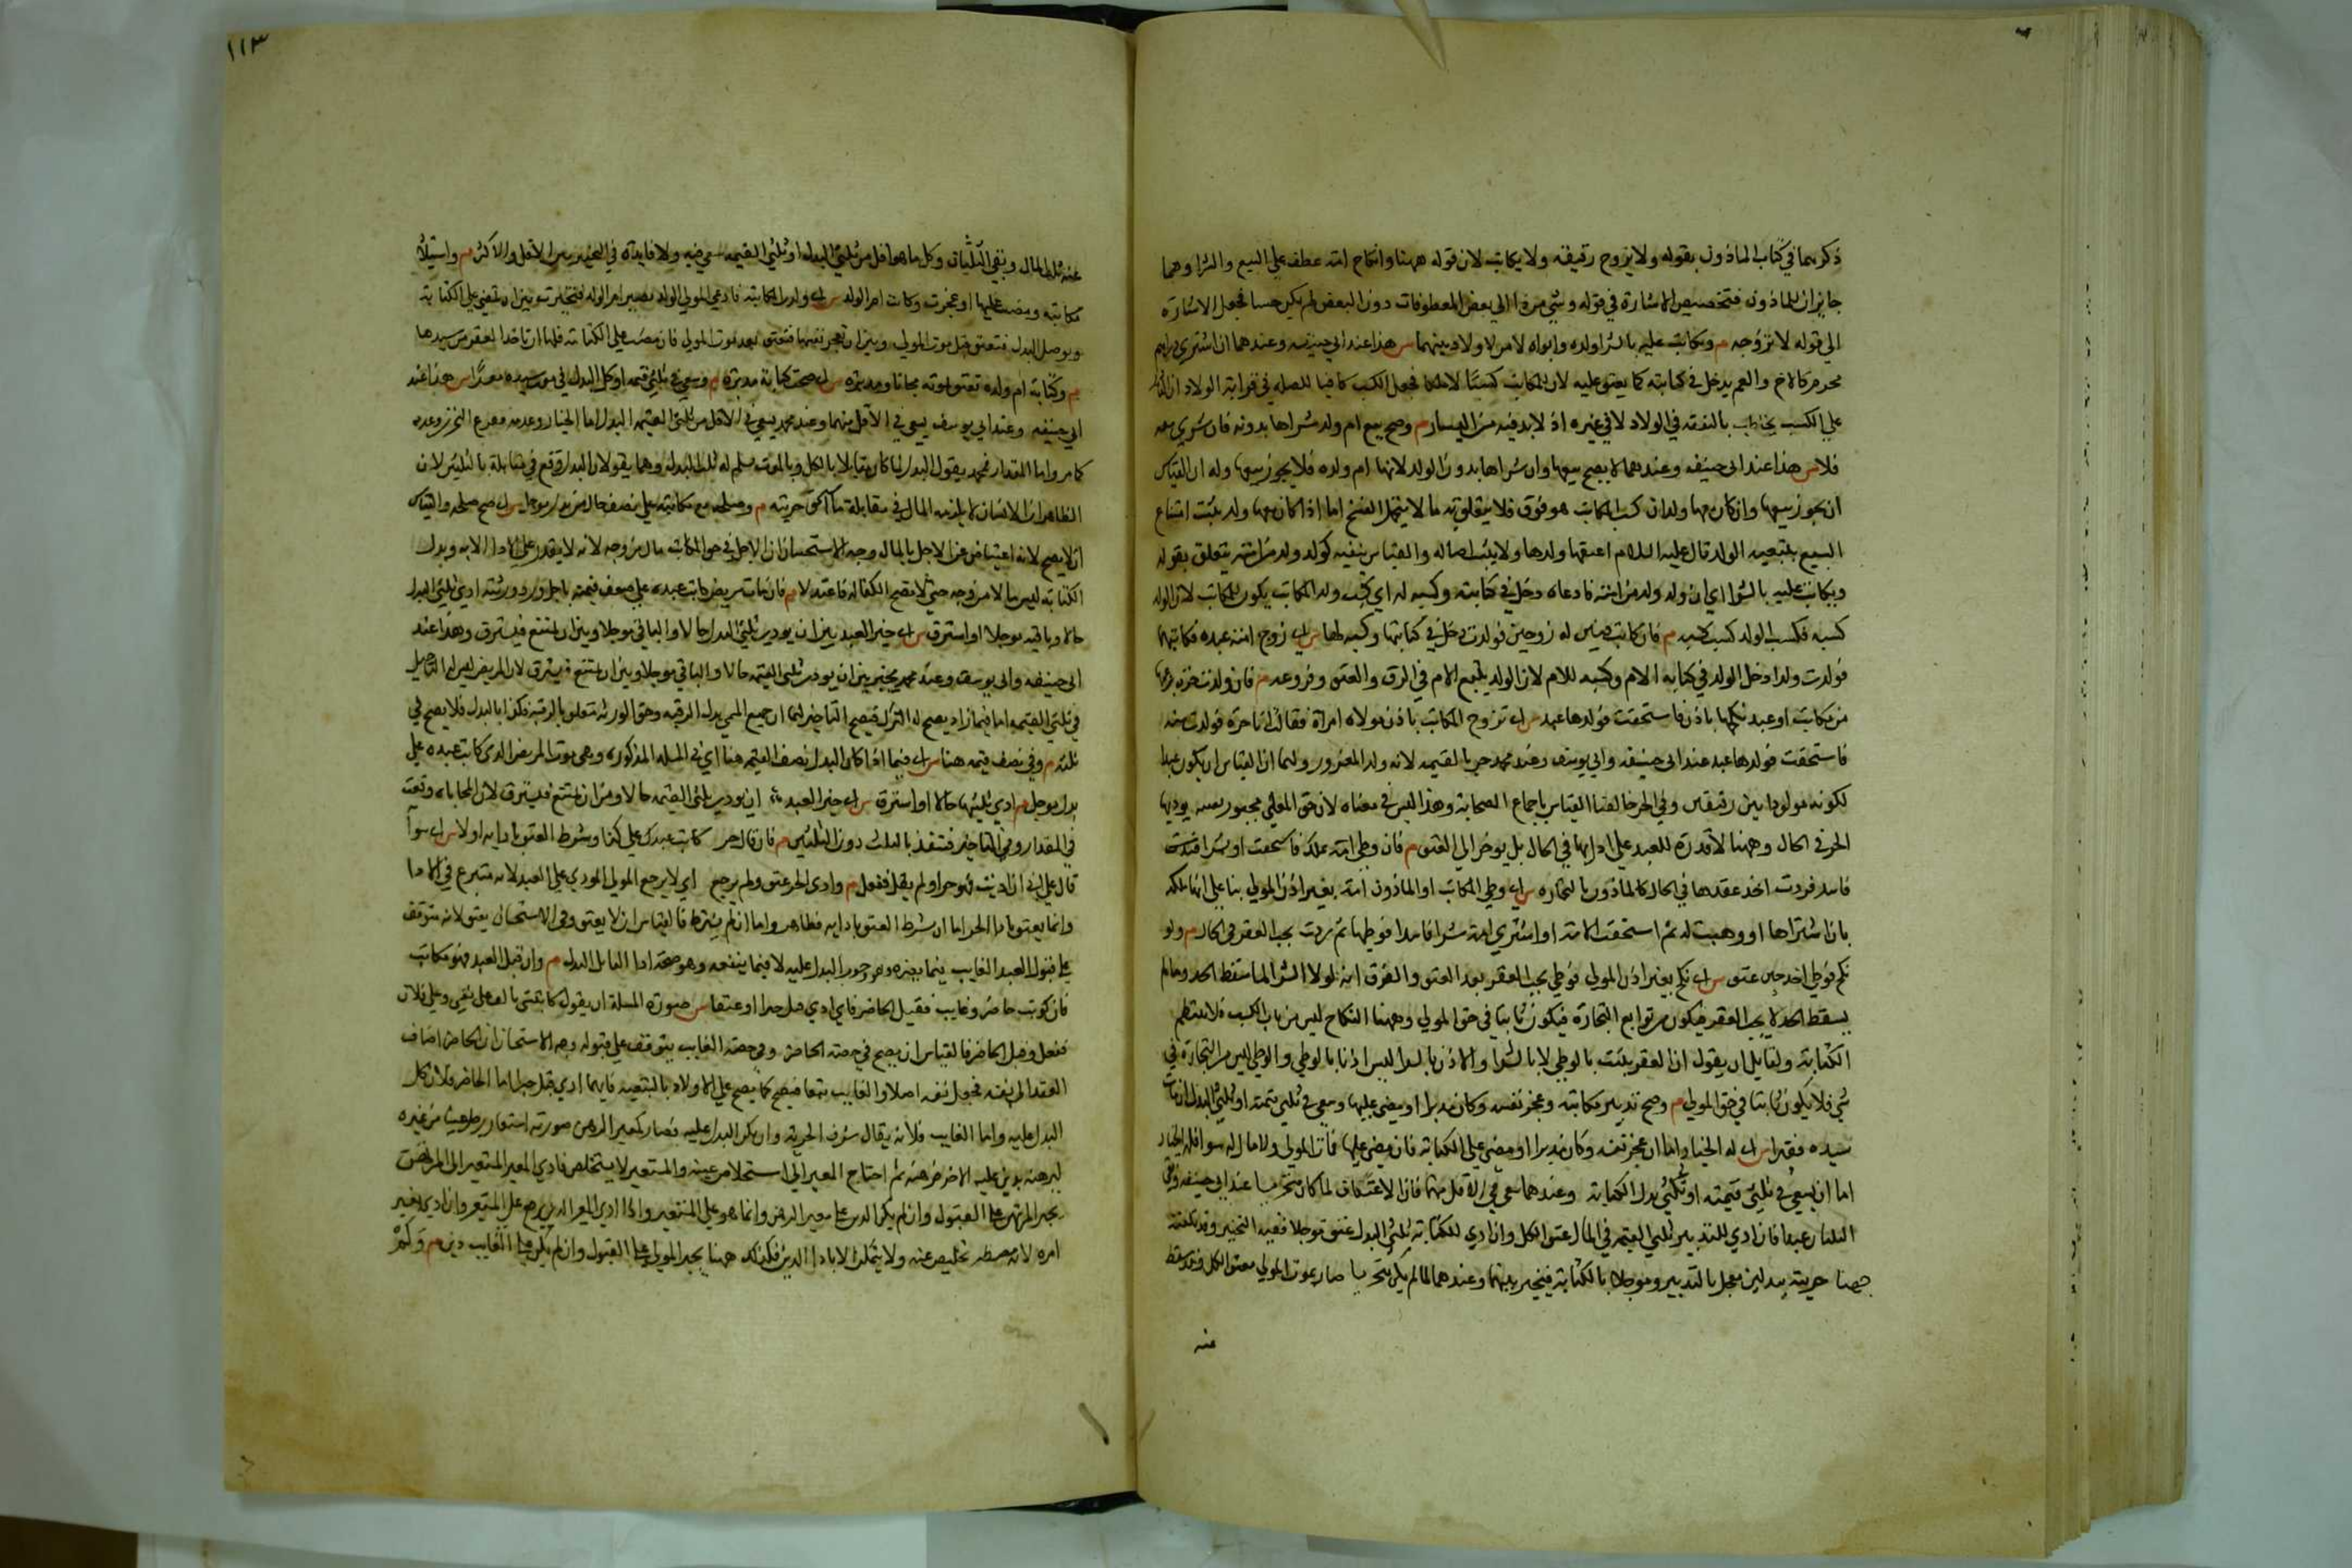 ذكرهما في كتاب الماذون بقوله ولا يزوج رقيقه ولا يكاتب لان قوله ههنا وانكاح امته عطف على البيع والشرا وهما
جايزان للماذون فتخصيص الاشارة في قوله وشي من ذا الي بعض المعطوفات دون البعض لم يكن حسنا فجعل الاشارة
الي قوله لا تزوجه م وتكاتب عليه بالشرا ولده وابواه لا من لا ولاد بينهما س هذا عند ابي حنيفه وعندهما ان اشتري ذا رحم
محرم كالاخ والعم يدخل في كتابته كما يعتق عليه لان للمكاتب كسبا لا ملكا فجعل الكسب كافيا للصله في قرابة الولاد
علي الكسب يخاطب بالنفقه في الولاد لا في غيره اذ لا بد فيه من اليسار م وصح بيع ام ولد شراها بدونه فان شري معه
فلا س هذا عند ابي حنيفه وعندهما لا يصح بيعها وان شراها بدون الولد لانها ام ولده فلا يجوز بيعها وله ان القياس
ان يجوز بيعها وان كان معها ولد لان كسب المكاتب موقوف فلا يتعلق به ما لا يحتمل الفسخ اما اذا كان معها ولد يثبت امتناع
البيع بتبعيه الولد قال عليه السلام اعتقها ولدها ولا يثبت اصاله والقياس ينفيه كولد ولد من امته يتعلق بقوله
ويكاتب عليه بالشرا اي ان ولد ولد من امته فادعاه دخل في كتابته وكسبه له اي كسب ولد المكاتب يكون للمكاتب لان الولد
كسبه فكسب الولد كسب كسبه م فان كاتب قنين له زوجين فولدت دخل في كتابتها وكسبه لها س اي زوج امته عبده فكاتبهما
فولدت ولدا دخل الولد في كتابة الام وكسبه للام لان الولد يتبع الام في الرق والعتق وفروعه م فان ولدت حرة بزعمها
من مكاتب او عبد نكحها باذن فاستحقت فولدها عبد س اي تزوج المكاتب باذن مولاه امراة فقالت انا حرة فولدت منه
فاستحقت فولدها عبد عند ابي حنيفه وابي يوسف وعند محمد حر بالقيمه لانه ولد المغرور ولهما ان القياس ان يكون عبدا
لكونه مولودا بين رقيقين وفي الحر خالفنا القياس باجماع الصحابة وهذا ليس في معناه لان حق المولي مجبور بقيمه يوديها
الحر في الحال وههنا لا قدرة للعبد علي ادايها في الحال بل يوخر الي العتق م فان وطي امته بملك فاستحقت او بشرا فاسد
فاسد فردت اخذ عقدها في الحال كالماذون بالتجاره س اي وطي المكاتب او الماذون امة بغير اذن المولي بنا علي انها ملكه
بان اشتراها او وهبت له ثم استحقت الامة او اشتري امة شرا فاسدا فوطيها ثم ردت يجب العقر في الحال م ولو
نكح فوطي اخذ حين عتق س اي نكح بغير اذن المولي فوطي يجب العقر بعد العتق والفرق انه لولا الشرا لما سقط الحد وما لم
يسقط الحد لا يجب العقر فيكون من توابع التجارة فيكون ثابتا في حق المولي وههنا النكاح ليس من باب الكسب فلا ينتظم
الكتابة ولقايل ان يقول ان العقر يثبت بالوطي لا بالشرا والاذن بالشرا ليس اذنا بالوطي والوطي ليس من التجارة في
شي فلا يكون ثابتا في حق المولي م وصح تدبير مكاتبه وعجز نفسه وكان مدبرا او مضي عليها وسعي في ثلثي قيمته او ثلثي البدل ان مات
سيده فقيرا س اي له الخيار اما ان عجز نفسه وكان مدبرا او مضي علي الكتابة فان مضي عليها فمات المولي ولا مال له سواه فله الخيار
اما ان يسعي في ثلثي قيمته او ثلثي بدل الكتابة وعندهما يسعي في الاقل منهما فان الاعتاق لما كان متجزيا عند ابي حنيفه
الثلثان عبدا فان ادي للتدبير ثلثي القيمه في الحال عتق الكل وان ادي للكتابة ثلثي البدل عتق موجلا فيفيد التخيير وقد تلقته
جهتا حرية ببدلين معجل بالتدبير وموجلا بالكتابة فيخير بينهما وعندهما لما لم يكن متجزيا صار بموت المولي معتق الكل وقد سقط
عنه
١١٣
عنه ثلث المال وبقي الثلثان وكل ما هو اقل من ثلثي البدل او ثلثي القيمه سعي فيه ولا فايدة في التخيير بين الاقل والاكثر م واستيلاد
مكاتبه ومضت عليها او عجزت وكانت ام الولد س اي ولدت المكاتبه فادعي المولي الولد تصير ام الولد فتخير بين ان تمضي علي الكتابة
وتوصل البدل فتعتق قبل موت المولي وبين ان تعجز نفسها فتعتق بعد موت المولي فان مضت علي الكتابة فلها ان تاخذ العقر من سيدها
م وكتابة ام ولده تعتق بموته مجانا ومدبره س اي صحت كتابة مدبره م وسعي في ثلثي قيمته او كل البدل في موت سيده معسرا س هذا عند
ابي حنيفه وعند ابي يوسف يسعي في الاقل منهما وعند محمد يسعي في الاقل من ثلثي القيمه البدل اما الخيار وعدمه ففرع التجزي وعدمه
كما مر واما المقدار فمحمد يقول البدل لما كان مقابلا بالكل وبالموت سلم له ثلث البدل وهما يقولان البدل وقع في مقابلة بالثلثين لان
الظاهر ان الانسان لا يلتزم المال في مقابلة ما استحق حريته م وصلحه مع مكاتبه علي نصف حال من بدل موجل س اي صح صلحه والقياس
ان لا يصح لانه اعتياض عن الاجل بالمال وجه الاستحسان ان الاجل في حق المكاتب مال من وجه لانه لا يقدر علي الاداء الا به وبدل
الكتابة ليس مالا من وجه حتي لا تصح الكفالة فاعتدلا م فان مات مريض كاتب عبده علي ضعف قيمته باجل ورد ورثته ادي ثلثي البدل
حالا وباقيه موجلا او استرق س اي خير العبد بين ان يودي ثلثي البدل حالا والباقي موجلا وبين ان يمتنع فيسترق وهذا عند
ابي حنيفه وابي يوسف وعند محمد يخير بين ان يودي ثلثي القيمه حالا والباقي موجلا وبين ان يمتنع فيسترق لان المريض ليس له التاجيل
في ثلثي القيمه اما فيما زاد يصح له الترك فيصح التاخير لهما ان جميع المسمي بدل الرقبه وحق الورثه متعلق بالرقبه فكذا بالبدل فلا يصح في
ثلثه م وفي نصف قيمته هنا س اي فيما اذا كان البدل نصف القيمه هنا اي في المسله المذكوره وهي موت المريض الذي كاتب عبده علي
بدل موجل م ادي ثلثيها حالا او استرق س اي خير العبد ان يودي ثلثي القيمه حالا ومن ان يمتنع فيسترق لان المحاباه وقعت
في المقدار وفي التاخير فتنفذ بالثلث دون الثلثين م فان قال حر كاتب عبدك علي كذا وشرط العتق بادايه او لا س اي سوا
قال علي اني ان اديت فهو حر او لم يقل ففعل م وادي الحر عتق ولم يرجع اي لا يرجع المولي المودي علي العبد لانه متبرع في الادا
وانما يعتق بادا الحر اما ان شرط العتق بادايه فظاهر واما ان لم يشترط فالقياس ان لا يعتق وفي الاستحسان يعتق لانه متوقف
علي قبول العبد الغايب فيما يضره وهو وجوب البدل عليه لا فيما ينفعه وهو صحة ادا القايل البدل م وان قبل العبد فهو مكاتب
فان كوتب حاضر وغايب فقبل الحاضر فاي ادي قبل جبرا وعتقا س صورة المسلة ان يقول كاتبتني بالف علي نفسي وعلي فلان
ففعل وقبل الحاضر فالقياس ان يصح في حصته الحاضر وفي حصته الغايب يتوقف علي قبوله وجه الاستحسان ان الحاضر اضاف
العقد الي نفسه فجعل نفسه اصلا والغايب تبعا فيصح كما يصح علي الاولاد بالتبعيه فايهما ادي قبل جبرا اما الحاضر فلان كل
البدل عليه واما الغايب فلانه ينال شرف الحرية وان لم يكن البدل عليه فصار كمعير الرهن صورته استعار رجل عينا من غيره
ليرهنه بدين عليه لاخر فرهنه ثم احتاج المعير الي استخلاص عينه والمستعير لا يستخلص فادي المعير المستعير الي المرتهن
يجبر المرتهن علي القبول وان لم يكن الدين علي معير الرهن وانما هو علي المستعير واذا ادي المعير الدين يرجع علي المستعير وان ادي بغير
امره لانه مضطر تخليص عينه ولا يتمكن الا بادا الدين فكذلك ههنا يجبر المولي علي القبول وان لم يكن علي الغايب دين م وكم